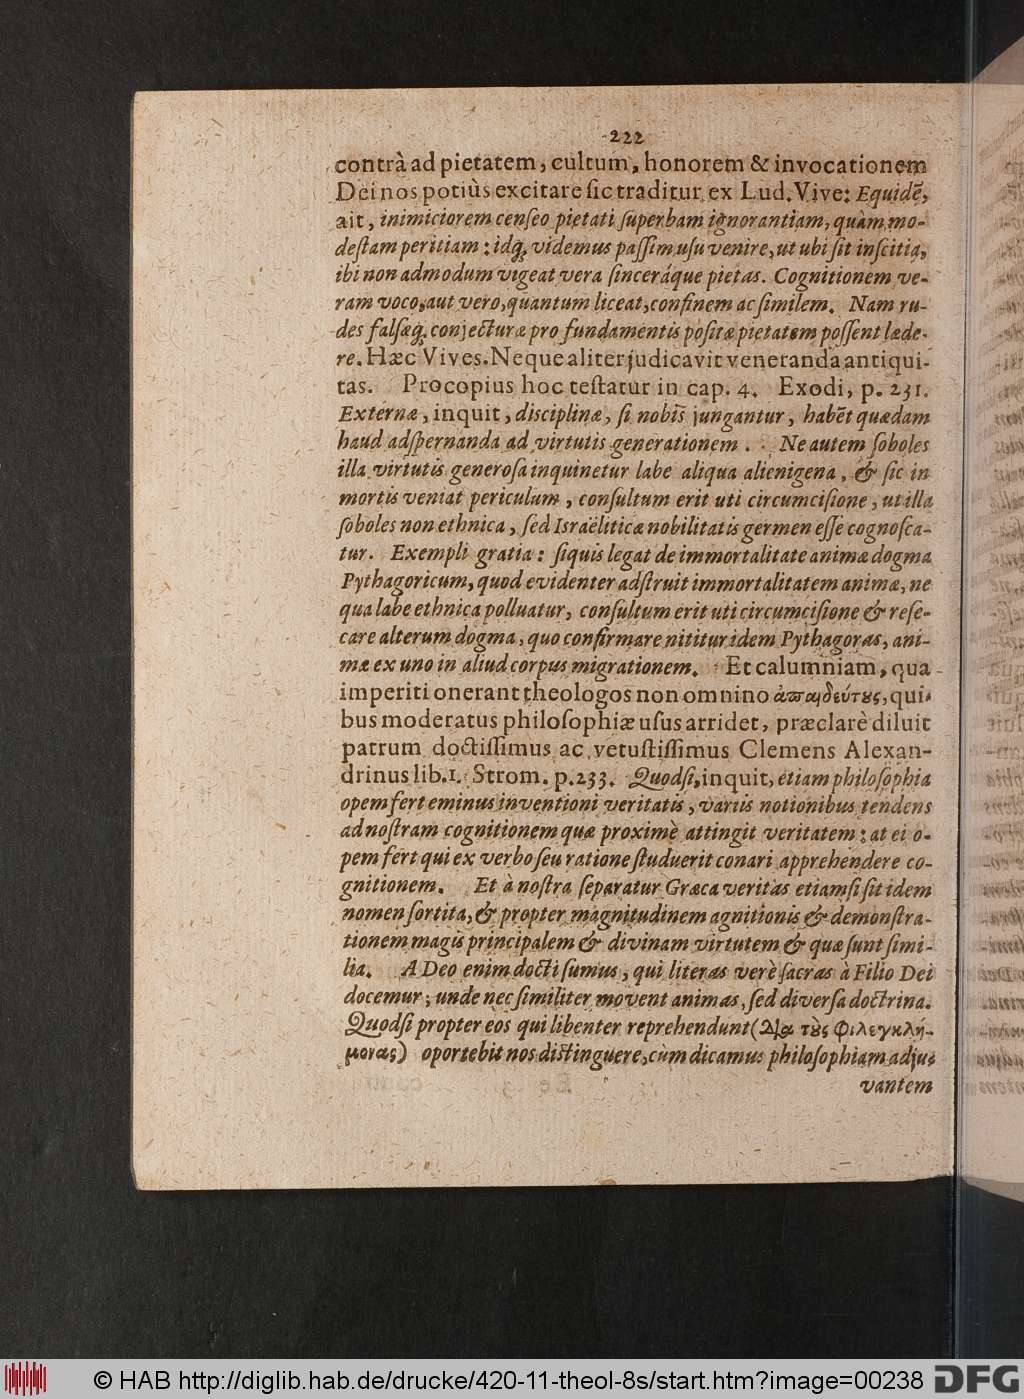 222
contrà ad pietatem, cultum, honorem & invocationem
Dei nos potiùs excitare ſic traditur ex Lud. Vive: Equidẽ,
ait, inimiciorem cenſeo pietati ſuperbam ignorantiam, quàm mo-
deſtam peritiam: idq; videmus paſſim uſu venire, ut ubi ſit inſcitia,
ibi non admodum vigeat vera ſinceráque pietas. Cognitionem ve-
ram voco, aut vero, quantum liceat, confinem ac ſimilem. Nam ru-
des falſæq; conjecturæ pro fundamentis poſitæ pietatem poſſent læde-
re. Hæc Vives. Neque aliter judicavit veneranda antiqui-
tas. Procopius hoc teſtatur in cap. 4. Exodi, p. 231.
Externæ, inquit, diſciplinæ, ſi nobis jungantur, habẽt quædam
haud adſpernanda ad virtutis generationem. Ne autem ſoboles
illa virtutis generoſa inquinetur labe aliqua alienigena, & ſic in
mortis veniat periculum, conſultum erit uti circumciſione, ut illa
ſoboles non ethnica, ſed Israëliticæ nobilitatis germen eſſe cognoſca-
tur. Exempli gratia: ſiquis legat de immortalitate animæ dogma
Pythagoricum, quod evidenter adſtruit immortalitatem animæ, ne
qua labe ethnica polluatur, conſultum erit uti circumciſione & reſe-
care alterum dogma, quo confirmare nititur idem Pythagoras, ani-
mæ ex uno in aliud corpus migrationem. Et calumniam, qua
imperiti onerant theologos non omnino ἀπαιδεύτους, qui-
bus moderatus philoſophiæ uſus arridet, præclarè diluit
patrum doctiſſimus ac vetuſtiſſimus Clemens Alexan-
drinus lib. 1. Strom. p. 233. Quodſi, inquit, etiam philoſophia
opem fert eminus inventioni veritatis, variis notionibus tendens
ad noſtram cognitionem quæ proximè attingit veritatem: at ei o-
pem fert qui ex verbo ſeu ratione ſtuduerit conari apprehendere co-
gnitionem. Et à noſtra ſeparatur Græca veritas etiamſi ſit idem
nomen ſortita, & propter magnitudinem agnitionis & demonſtra-
tionem magis principalem & divinam virtutem & quæ ſunt ſimi-
lia. A Deo enim docti ſumus, qui literas verè ſacras à Filio Dei
docemur; unde nec ſimiliter movent animas, ſed diverſa doctrina.
Quodſi propter eos qui libenter reprehendunt (Διὰ τοὺς φιλεγκλή-
μονας) oportebit nos diſtinguere, cùm dicamus philoſophiam adju-
vantem
© HAB http://diglib.hab.de/drucke/420-11-theol-8s/start.htm?image=00238
DFG